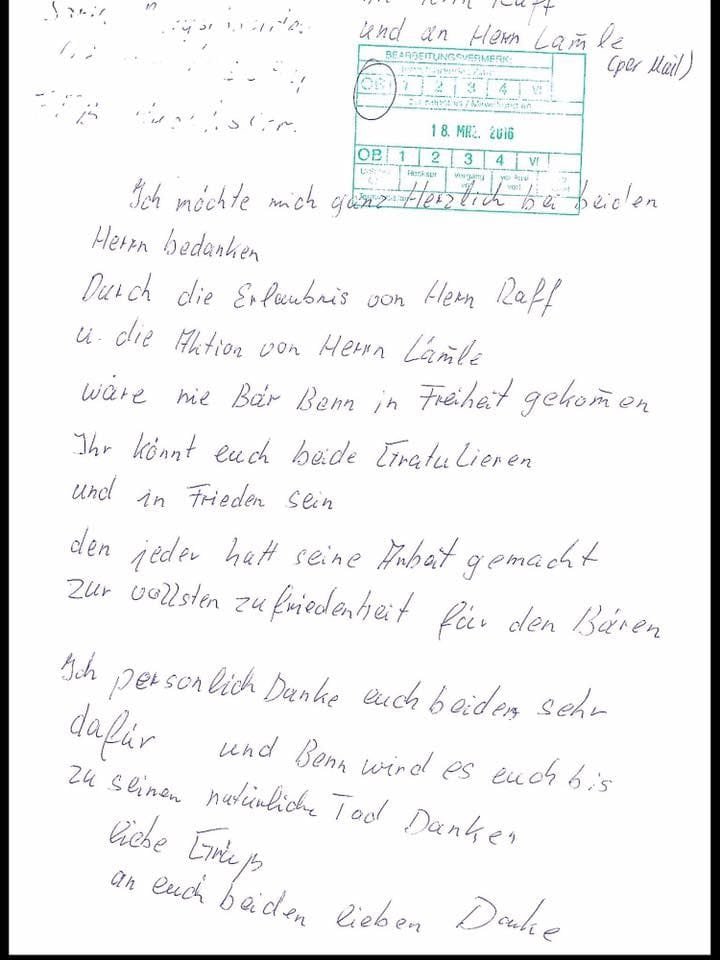 und an Herrn Lam̄le
(per Mail)
BEARBEITUNGSVERMERK:
OB 1 2 3 4 VI
18. MRZ. 2016
OB 1 2 3 4 VI
Ich möchte mich ganz Herzlich bei beiden
Herrn bedanken
Durch die Erlaubnis von Hern Raff
u. die Aktion von Herrn Läm̄le
wäre nie Bär Benn in Freiheit gekom̄en
Ihr könnt euch beide Gratulieren
und in Frieden sein
den jeder hatt seine Arbeit gemacht
zur vollsten zufriedenheit für den Bären
Ich personlich Danke euch beiden sehr
dafür und Benn wird es euch bis
zu seinen natürliche Tod Danken
liebe Grüß
an euch beiden lieben Danke